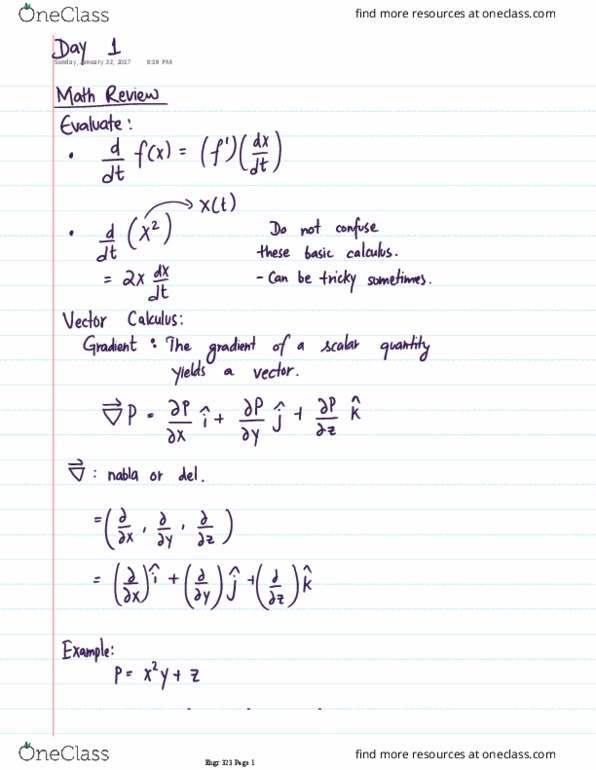 OneClass find more resources at oneclass.com
Day 1
Sunday, January 22, 2017 8:39 PM
Math Review
Evaluate:
• d/dt f(x) = (f')(dx/dt)
• d/dt (x²) → x(t)
Do not confuse
these basic calculus.
= 2x dx/dt
- Can be tricky sometimes.
Vector Calculus:
Gradient : The gradient of a scalar quantity
yields a vector.
∇⃗P = ∂P/∂x î + ∂P/∂y ĵ + ∂P/∂z k̂
∇⃗ : nabla or del.
= (∂/∂x , ∂/∂y , ∂/∂z)
= (∂/∂x) î + (∂/∂y) ĵ + (∂/∂z) k̂
Example:
P = x²y + z
OneClass find more resources at oneclass.com
Engr 323 Page 1